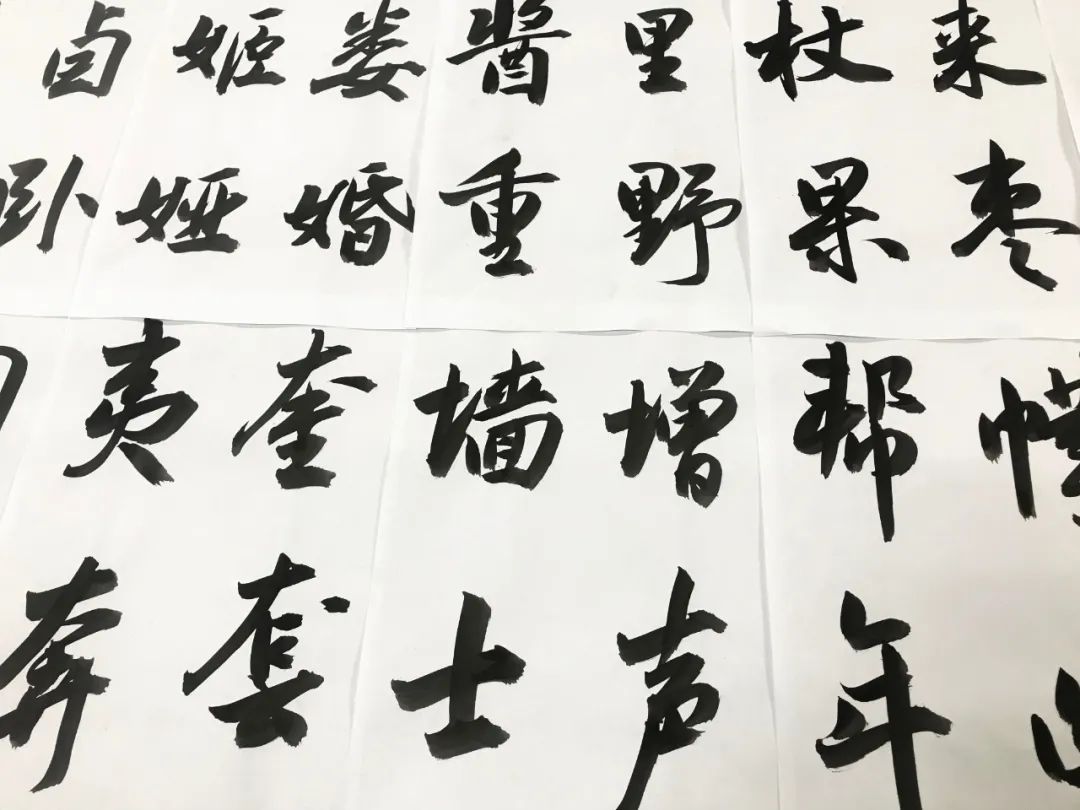 卤姬娄酱里杖来
卧娅婚重野果枣
夷奎墙增帮
奔套士声年